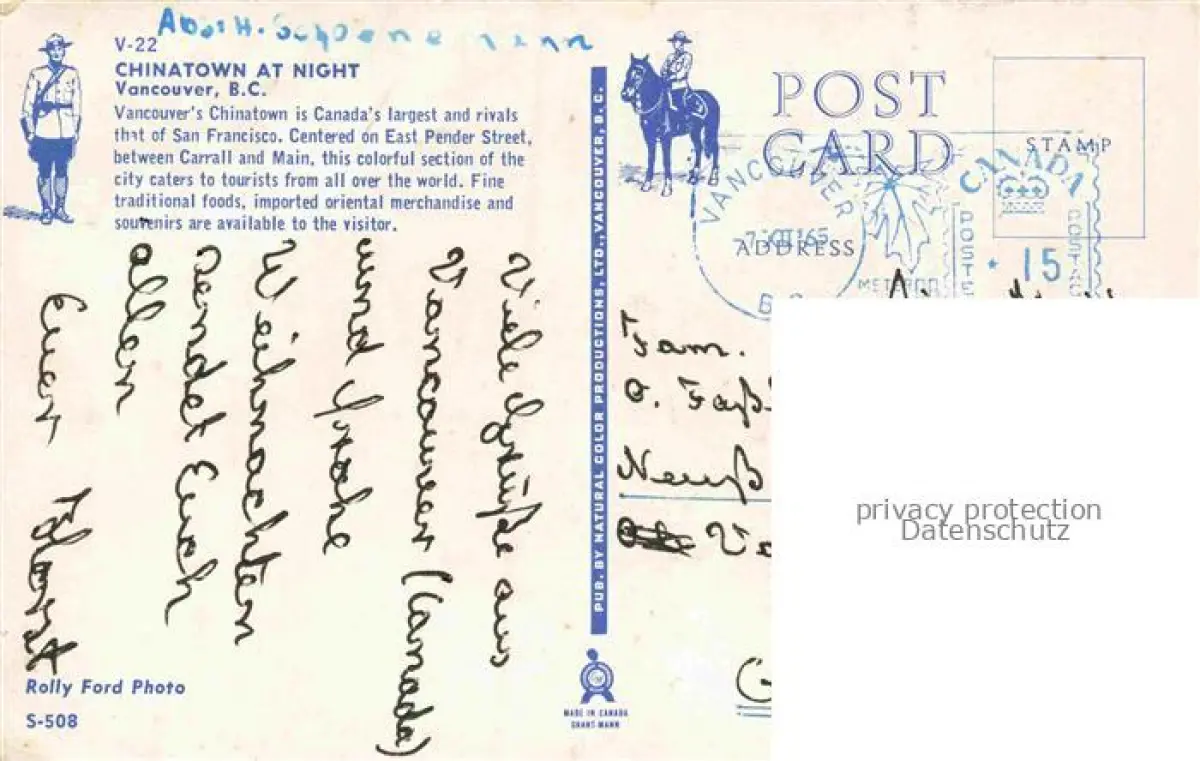 V-22
CHINATOWN AT NIGHT
Vancouver, B.C.
Vancouver's Chinatown is Canada's largest and rivals
that of San Francisco. Centered on East Pender Street,
between Carrall and Main, this colorful section of the
city caters to tourists from all over the world. Fine
traditional foods, imported oriental merchandise and
souvenirs are available to the visitor.
Viele Grüße aus
Vancouver (Canada)
und frohe
Weihnachten
sendet Euch
allen
Euer Horst
Rolly Ford Photo
S-508
PUB. BY NATURAL COLOR PRODUCTIONS, LTD., VANCOUVER, B.C.
MADE IN CANADA
GRANT-MANN
POST
CARD
ADDRESS
STAMP
VANCOUVER
CANADA
15
Fam.
Neuß
privacy protection
Datenschutz